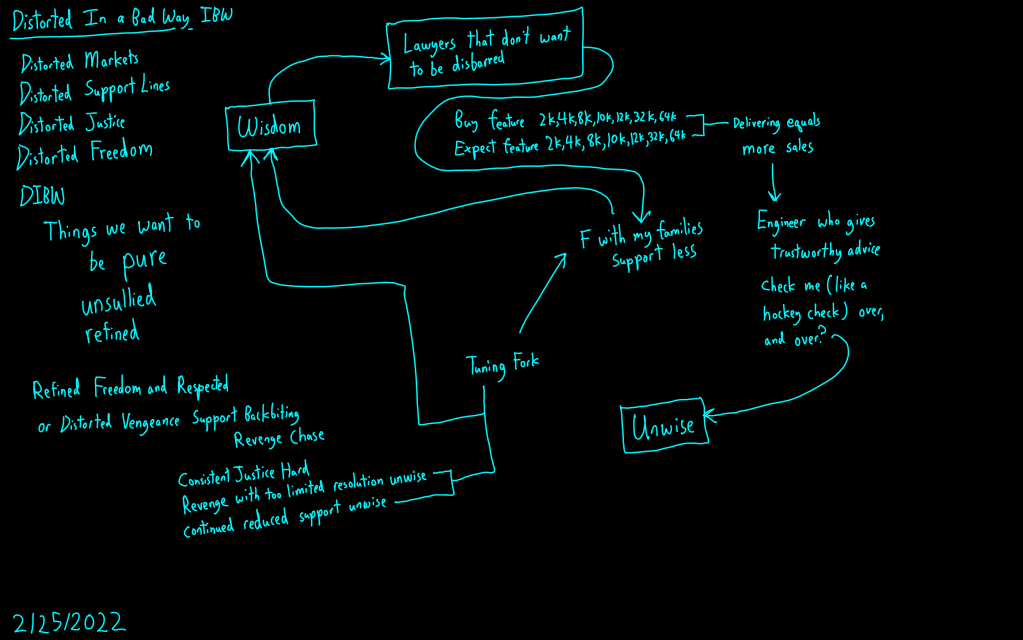 Distorted In a Bad Way IBW
Distorted Markets
Distorted Support Lines
Distorted Justice
Distorted Freedom
DIBW
Things we want to
be pure
unsullied
refined
Refined Freedom and Respected
or Distorted Vengeance Support Backbiting
Revenge Chase
Consistent Justice Hard
Revenge with too limited resolution unwise
continued reduced support unwise
Wisdom
Lawyers that don't want
to be disbarred
Buy feature 2k,4k,8k,10k,12k,32k,64k
Expect feature 2k,4k,8k,10k,12k,32k,64k
Delivering equals
more sales
F with my families
support less
Tuning Fork
Engineer who gives
trustworthy advice
check me (like a
hockey check) over,
and over?
Unwise
2/25/2022